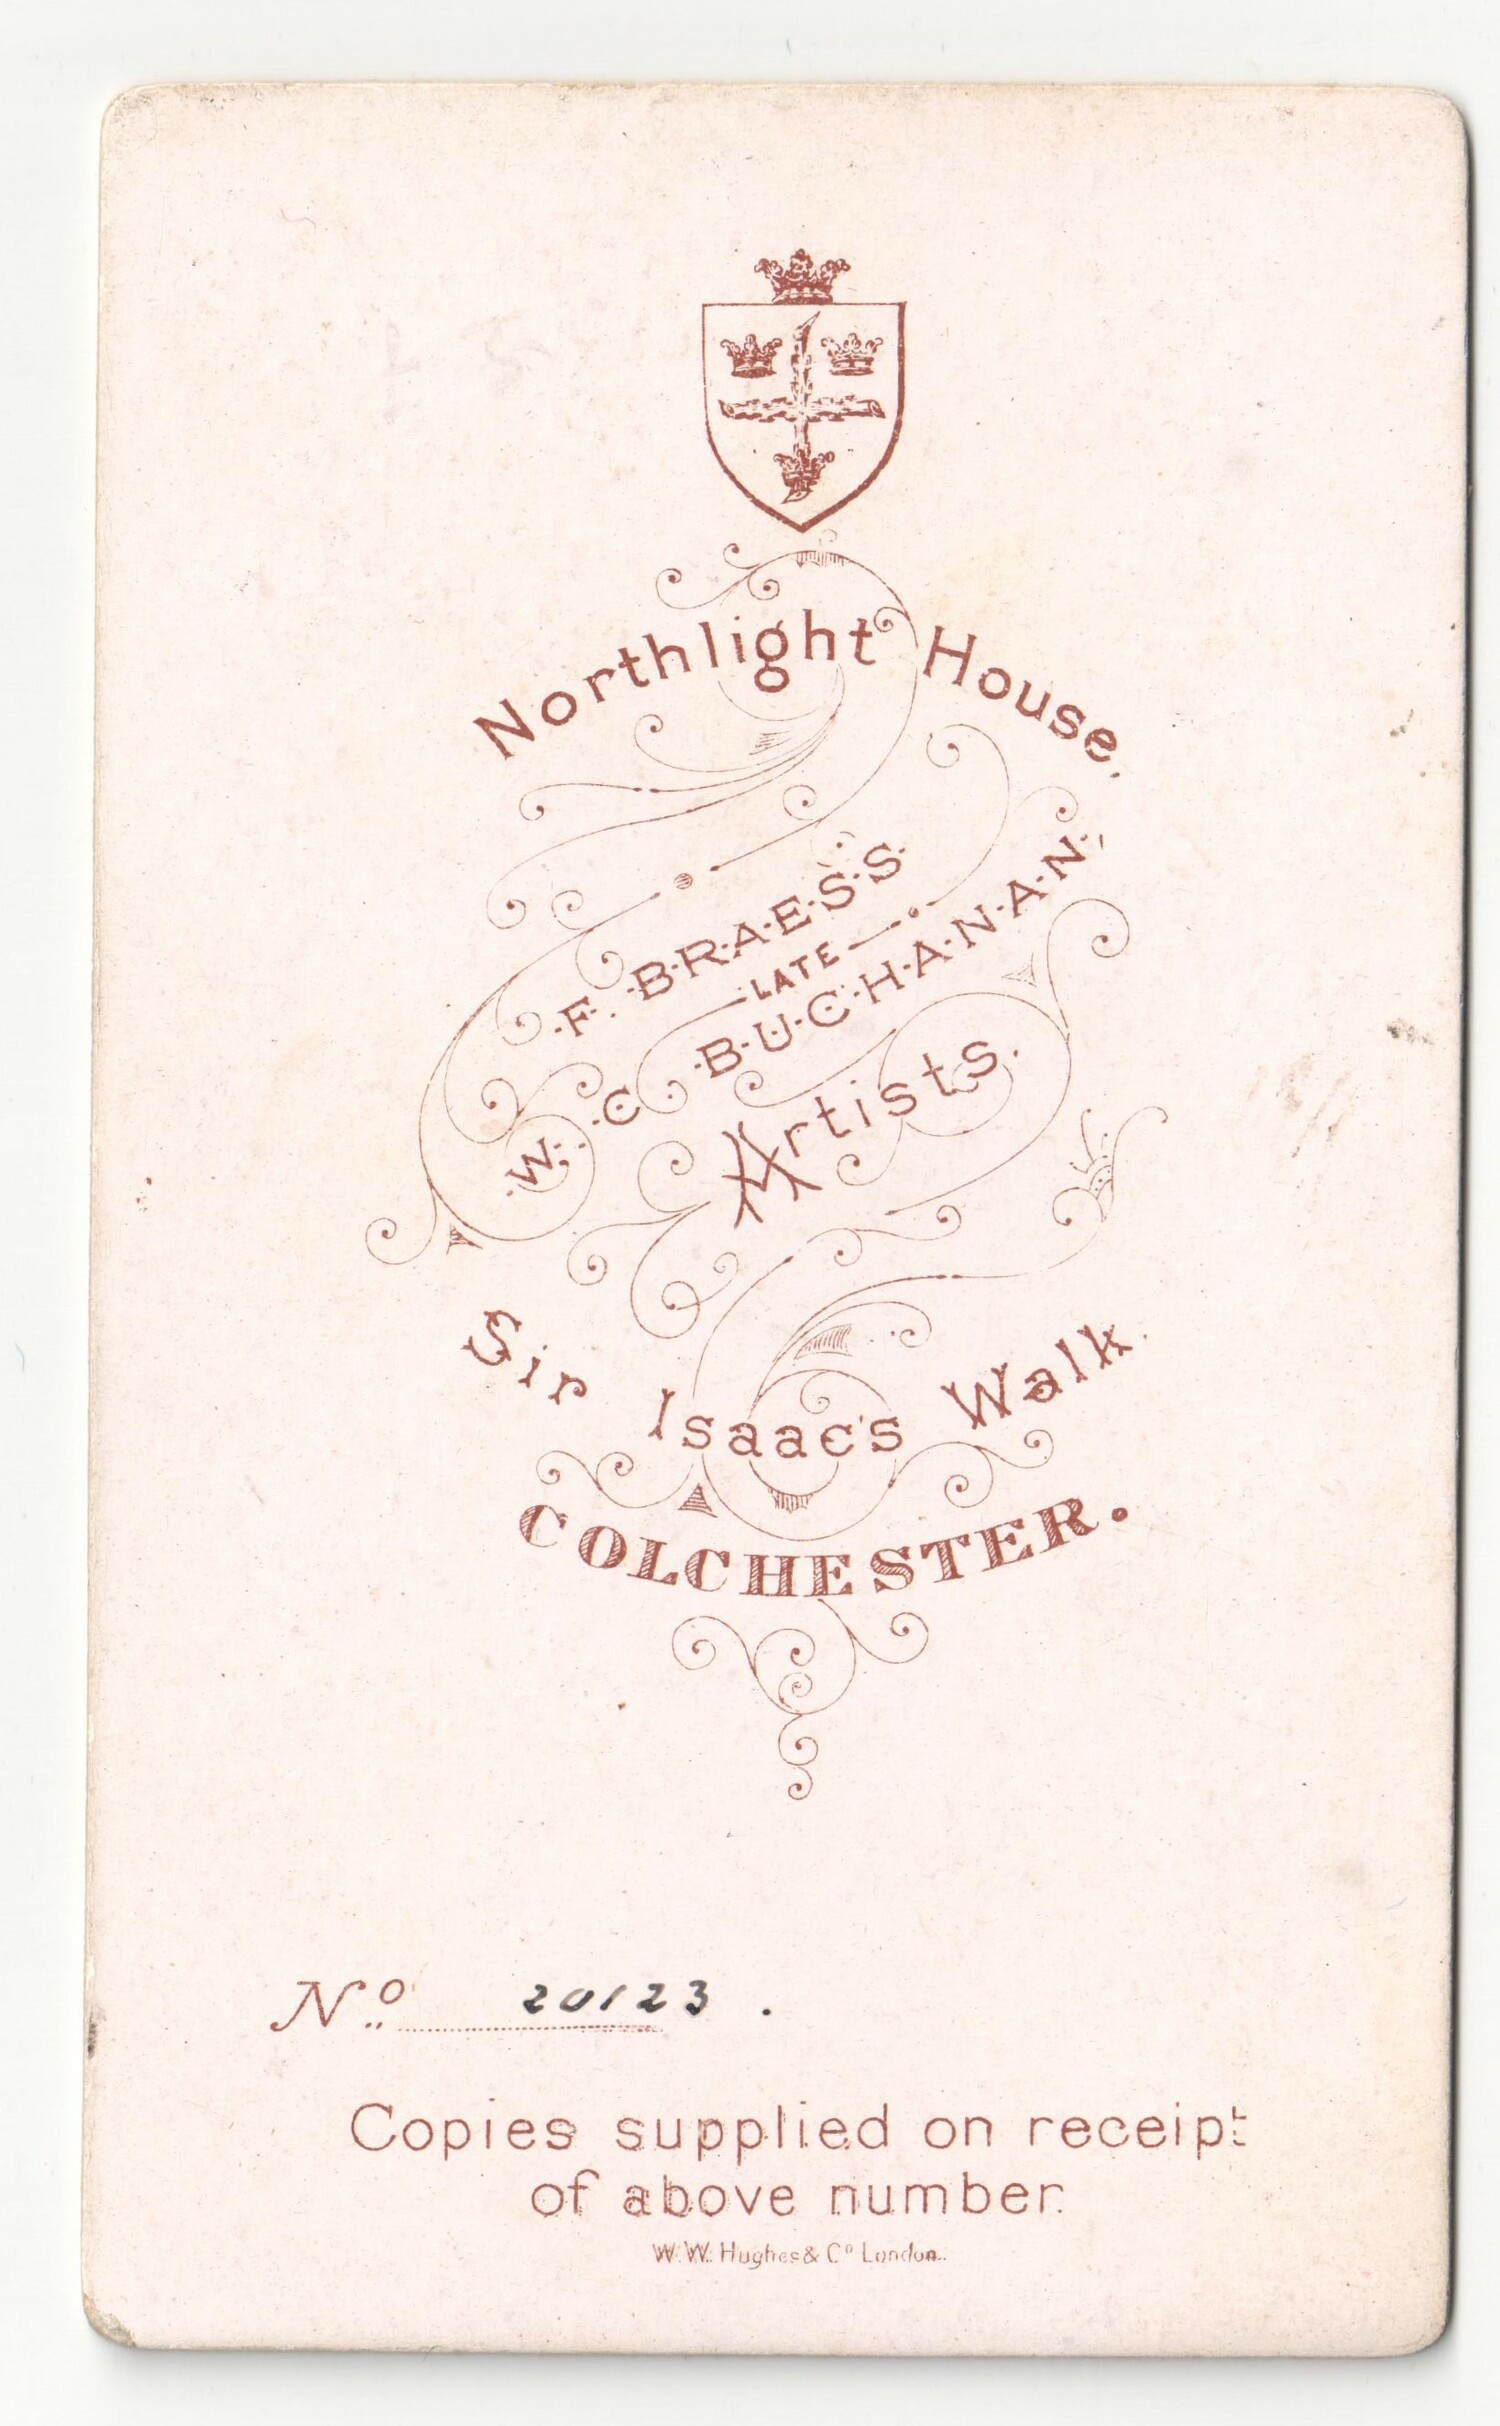 Northlight House.
F. B·R·A·E·S·S
LATE
W. C. B·U·C·H·A·N·A·N,
Artists.
Sir Isaac's Walk.
COLCHESTER.
No. 20123.
Copies supplied on receipt
of above number.
W. W. Hughes & Co London.